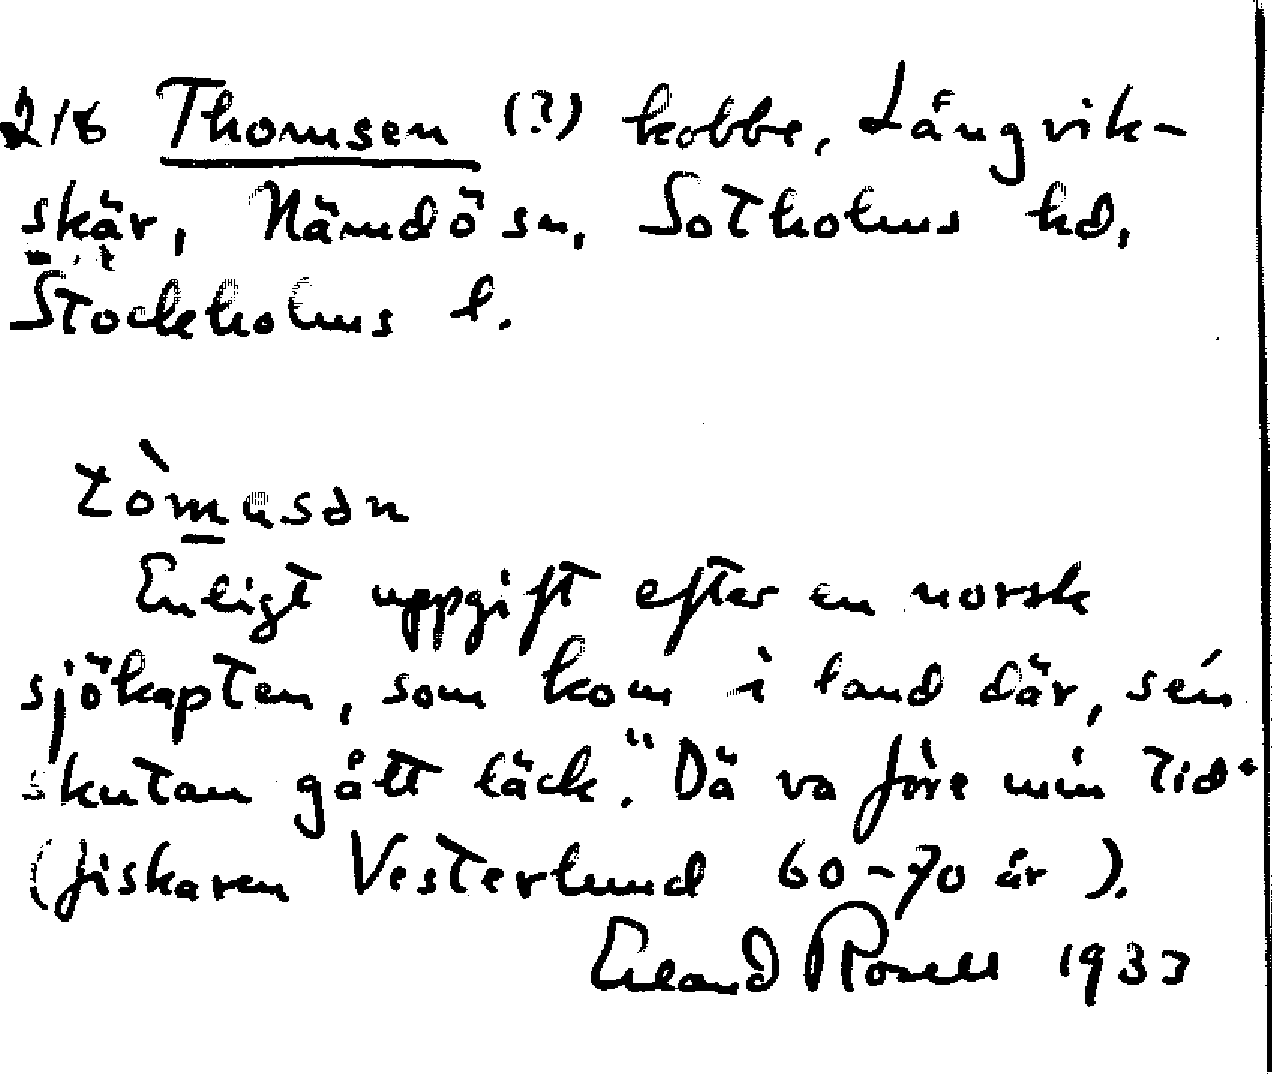 218 Thomsen (?) kobbe, Långvik-
skär, Nämdö sn, Sotholms hd,
Stockholms l.
tòmasən
Enligt uppgift efter en norsk
sjökapten, som kom i land där, sén
skutan gått läck. "Dä va före min tid"
(fiskaren Vesterlund 60-70 år).
Erland Rosell 1933